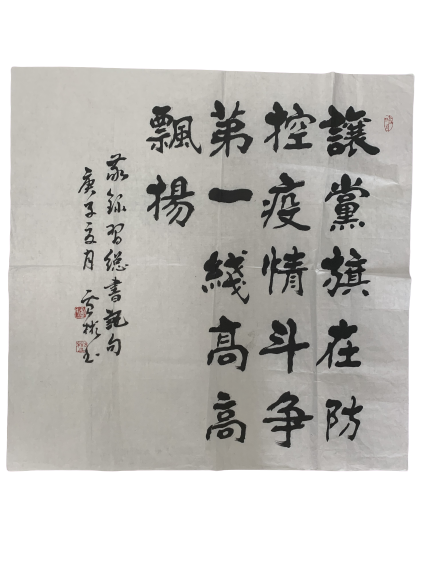 讓黨旗在防
控疫情斗争
第一綫高高
飄揚
敬録習總書記句
庚子夏月